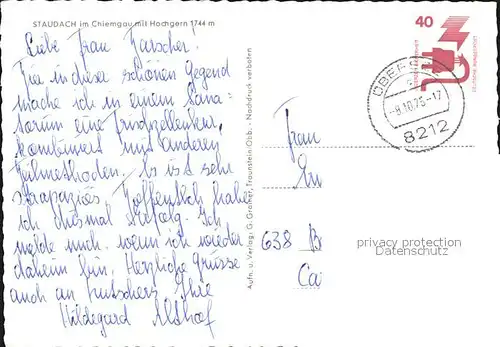 STAUDACH im Chiemgau mit Hochgern 1744 m
Liebe Frau
Hier in dieser schönen Gegend
mache ich in einem Sana-
torium eine Frischzellenkur,
kombiniert mit anderen
Heilmethoden. Es ist sehr
strapaziös. Hoffentlich habe
ich diesmal Erfolg. Ich
melde mich, wenn ich wieder
daheim bin. Herzliche Grüsse
auch an Ihre
Hildegard Althof
Aufn. u. Verlag: G. Gratner, Traunstein Obb. - Nachdruck verboten
40
DEUTSCHE BUNDESPOST
-8.10.73-17
8212
Frau
638 B
privacy protection
Datenschutz